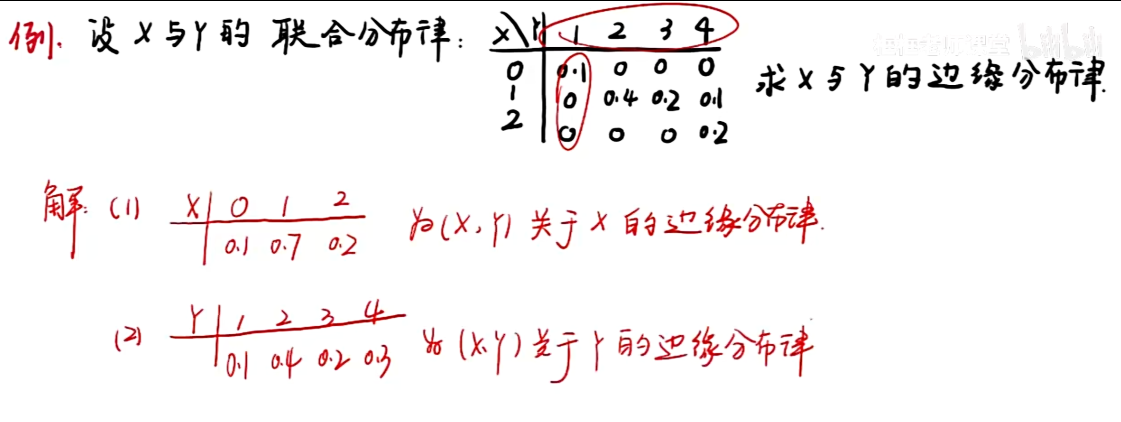 例. 设 X 与 Y 的 联合分布律: X\Y 1 2 3 4 求 X 与 Y 的边缘分布律.
0 0.1 0 0 0
1 0 0.4 0.2 0.1
2 0 0 0 0.2
解: (1) X 0 1 2 为(X,Y) 关于 X 的边缘分布律.
0.1 0.7 0.2
(2) Y 1 2 3 4 为(X,Y) 关于 Y 的边缘分布律
0.1 0.4 0.2 0.3
bilibili